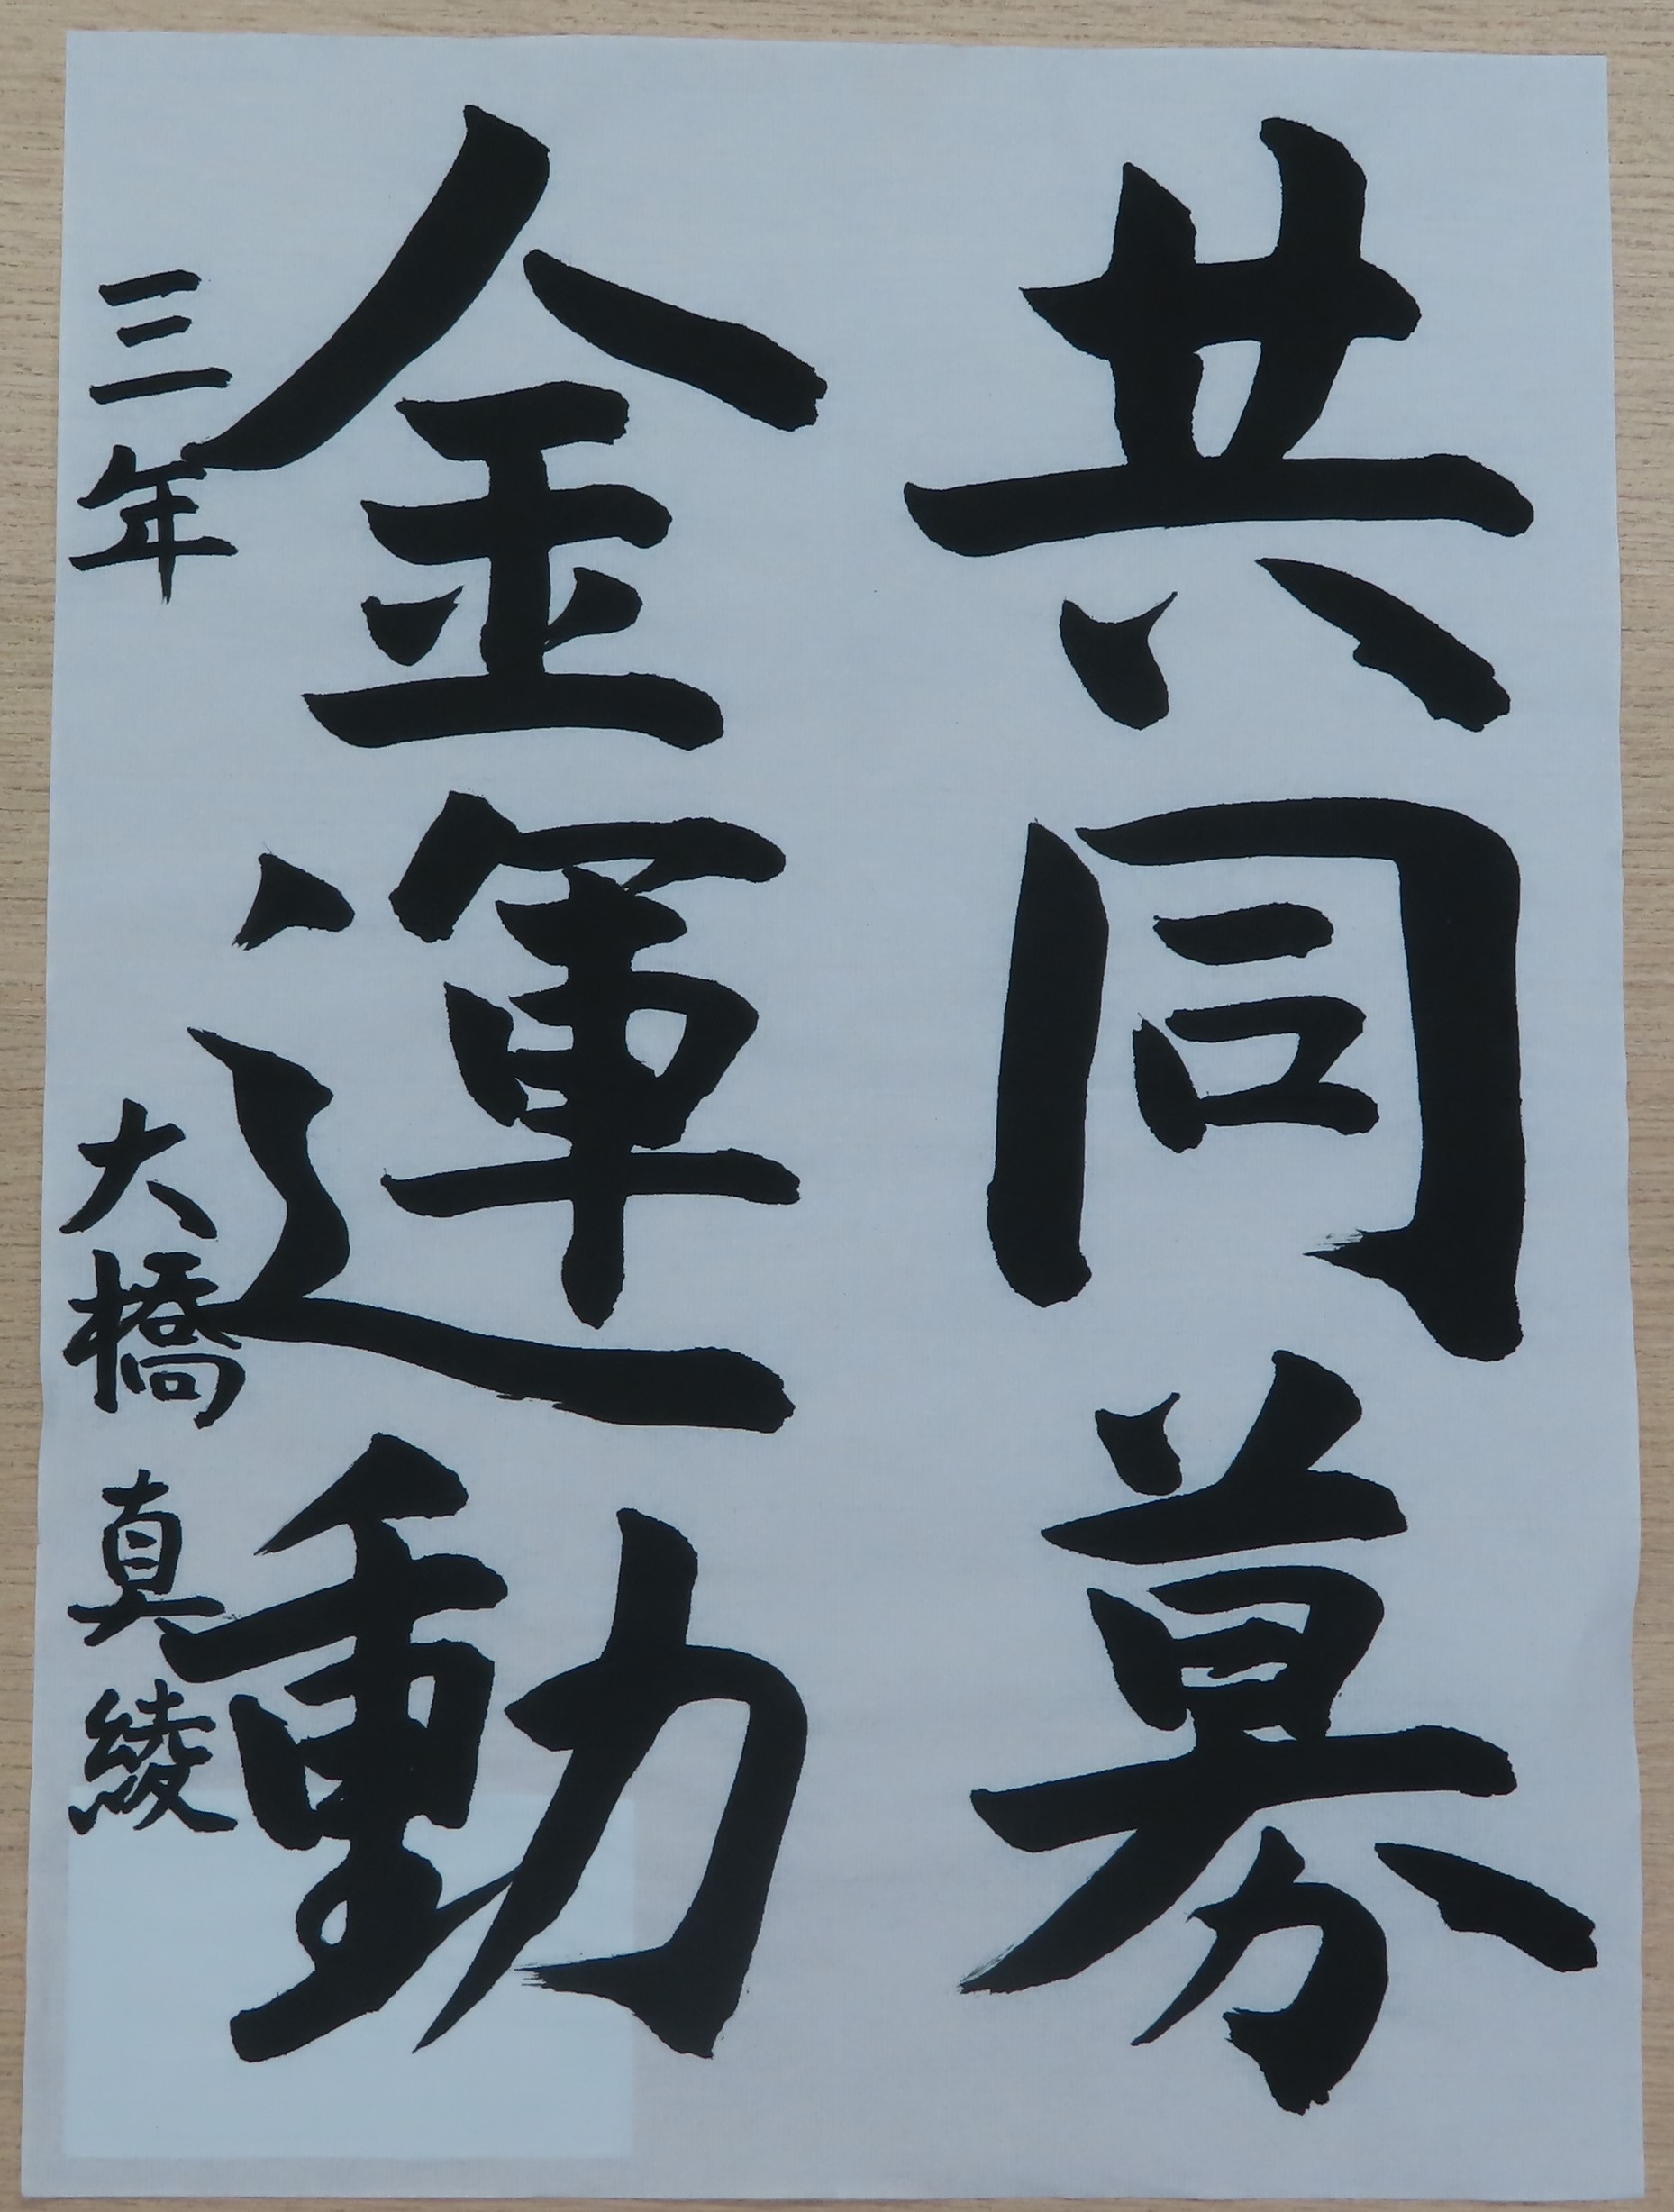 共同募
金運動
三年 大橋真綾